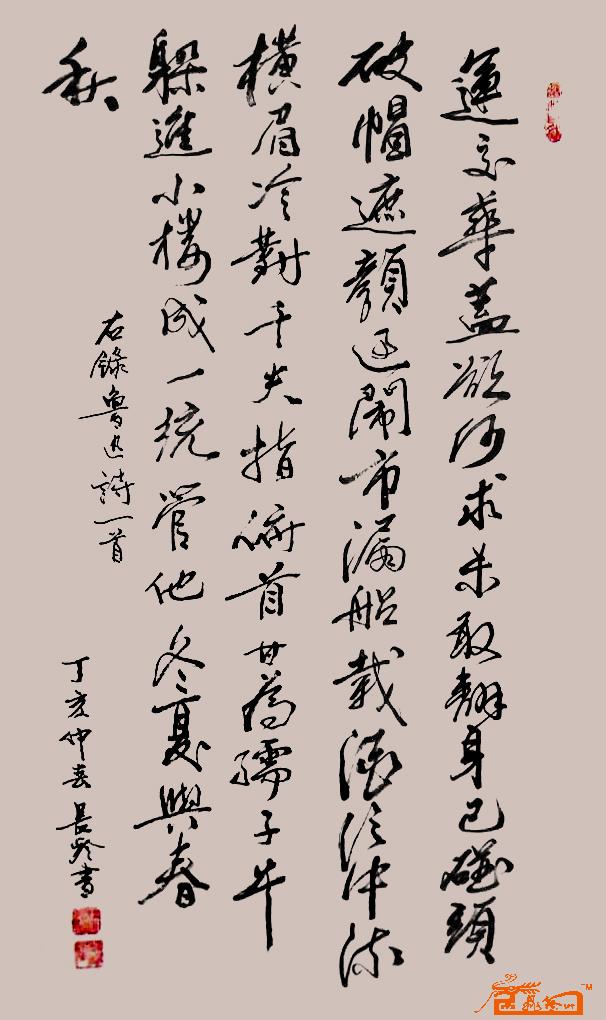 運交華蓋欲何求未敢翻身已碰頭
破帽遮顏過鬧市漏船載酒泛中流
橫眉冷對千夫指俯首甘為孺子牛
躲進小楼成一統管他冬夏與春
秋
右錄魯迅詩一首
丁亥仲春 書